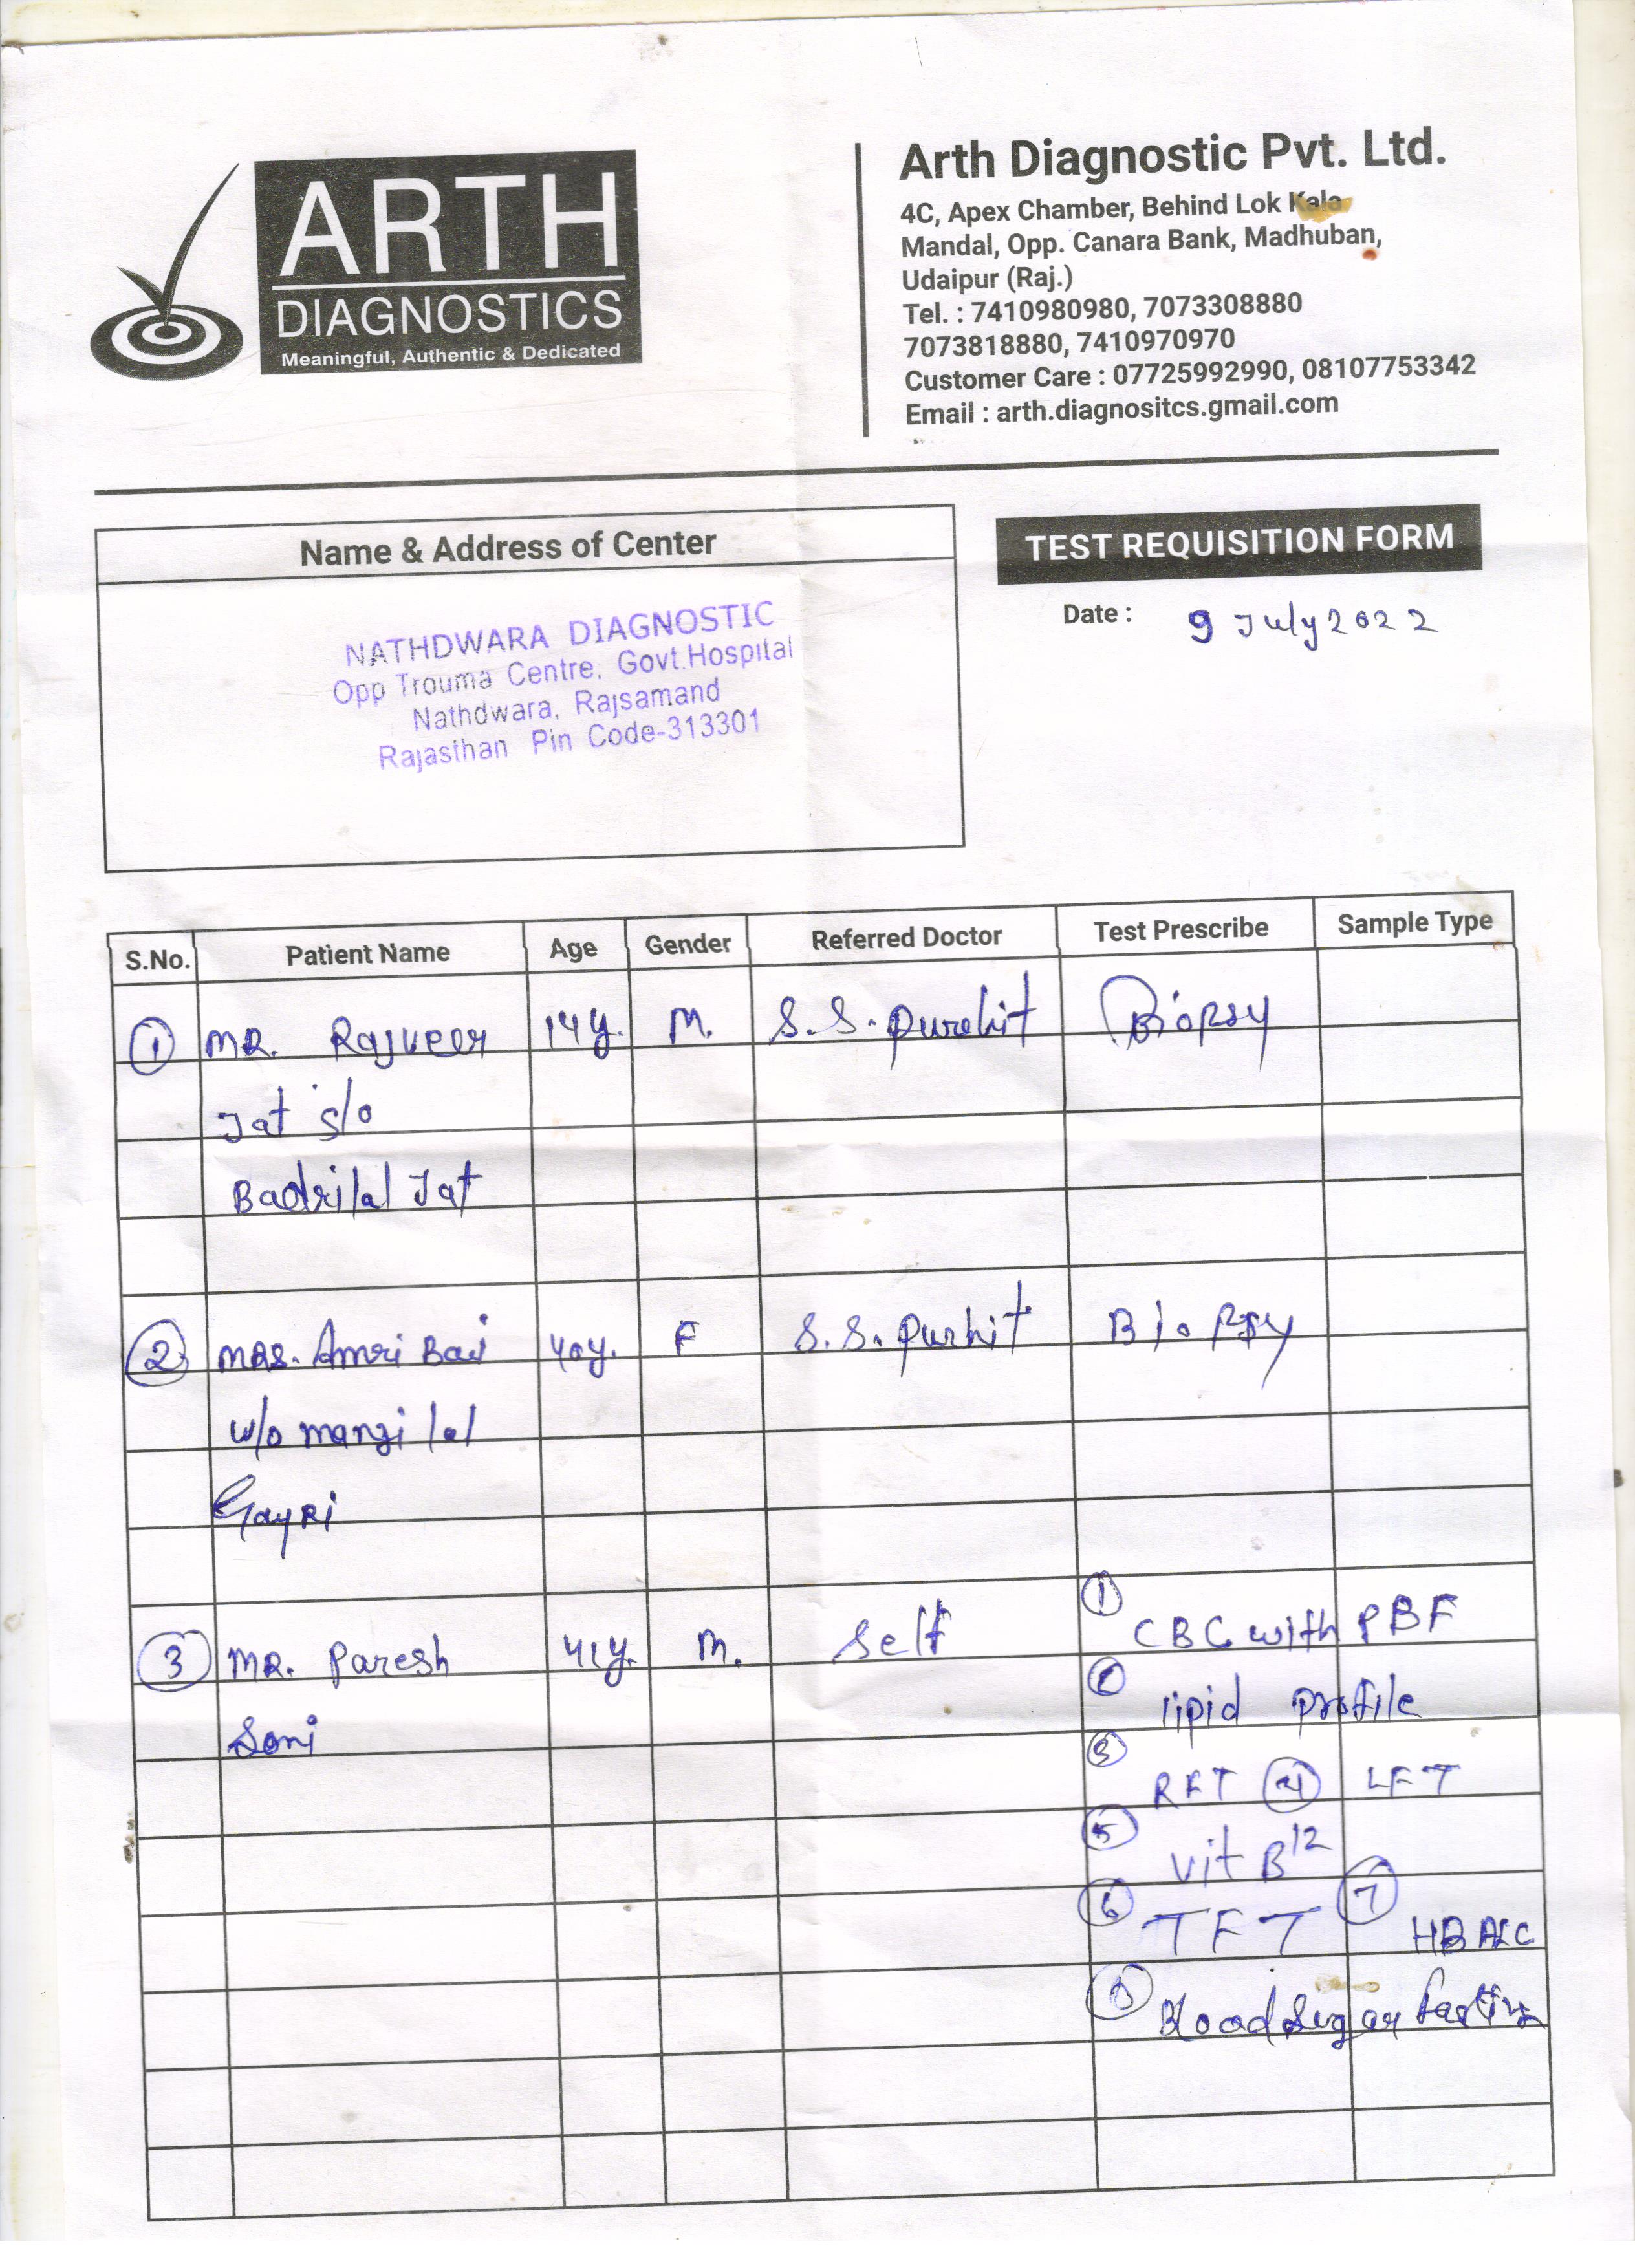 ARTH
DIAGNOSTICS
Meaningful, Authentic & Dedicated
Arth Diagnostic Pvt. Ltd.
4C, Apex Chamber, Behind Lok Kala
Mandal, Opp. Canara Bank, Madhuban,
Udaipur (Raj.)
Tel. : 7410980980, 7073308880
7073818880, 7410970970
Customer Care : 07725992990, 08107753342
Email : arth.diagnositcs.gmail.com
Name & Address of Center
NATHDWARA DIAGNOSTIC
Opp Trouma Centre, Govt.Hospital
Nathdwara, Rajsamand
Rajasthan Pin Code-313301
TEST REQUISITION FORM
Date : 9 July 2022
S.No. Patient Name Age Gender Referred Doctor Test Prescribe Sample Type
1 MR. Rajveer 14y. M. S.S. purohit Biopsy
Jat s/o
Badrilal Jat
2 MRS. Amri Bai 40y. F S.S. purhit Biopsy
w/o mangi lal
Gayri
3 MR. Paresh 41y. M. Self 1 CBC with PBF
Soni 2 lipid profile
3 RFT 4 LFT
5 vit B12
6 TFT 7 HBA1C
8 Blood Sugar fasting